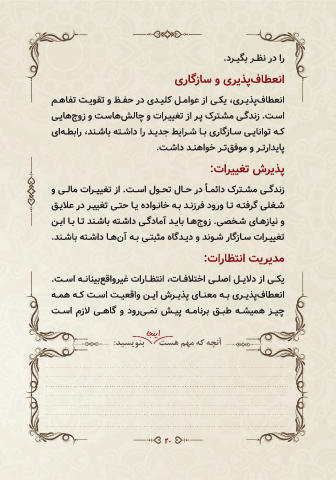 را در نظر بگیرد.
انعطاف‌پذیری و سازگاری
انعطاف‌پذیری، یکی از عوامل کلیدی در حفظ و تقویت تفاهم
است. زندگی مشترک پر از تغییرات و چالش‌هاست و زوج‌هایی
که توانایی سازگاری با شرایط جدید را داشته باشند، رابطه‌ای
پایدارتر و موفق‌تر خواهند داشت.
پذیرش تغییرات:
زندگی مشترک دائماً در حال تحول است. از تغییرات مالی و
شغلی گرفته تا ورود فرزند به خانواده یا حتی تغییر در علایق
و نیازهای شخصی. زوج‌ها باید آمادگی داشته باشند تا با این
تغییرات سازگار شوند و دیدگاه مثبتی به آن‌ها داشته باشند.
مدیریت انتظارات:
یکی از دلایل اصلی اختلافات، انتظارات غیرواقع‌بینانه است.
انعطاف‌پذیری به معنای پذیرش این واقعیت است که همه
چیز همیشه طبق برنامه پیش نمی‌رود و گاهی لازم است
آنچه که مهم هست اینجا بنویسید:
۲۰